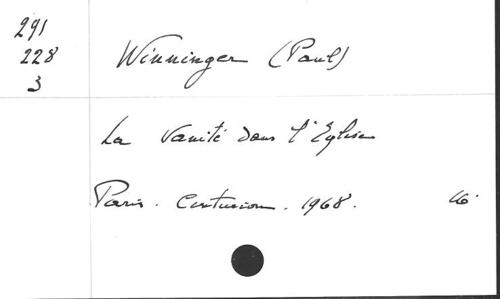 291
228
3
Winninger (Paul)
La Vanité dans l'Eglise
Paris. Centurion. 1968.
16°